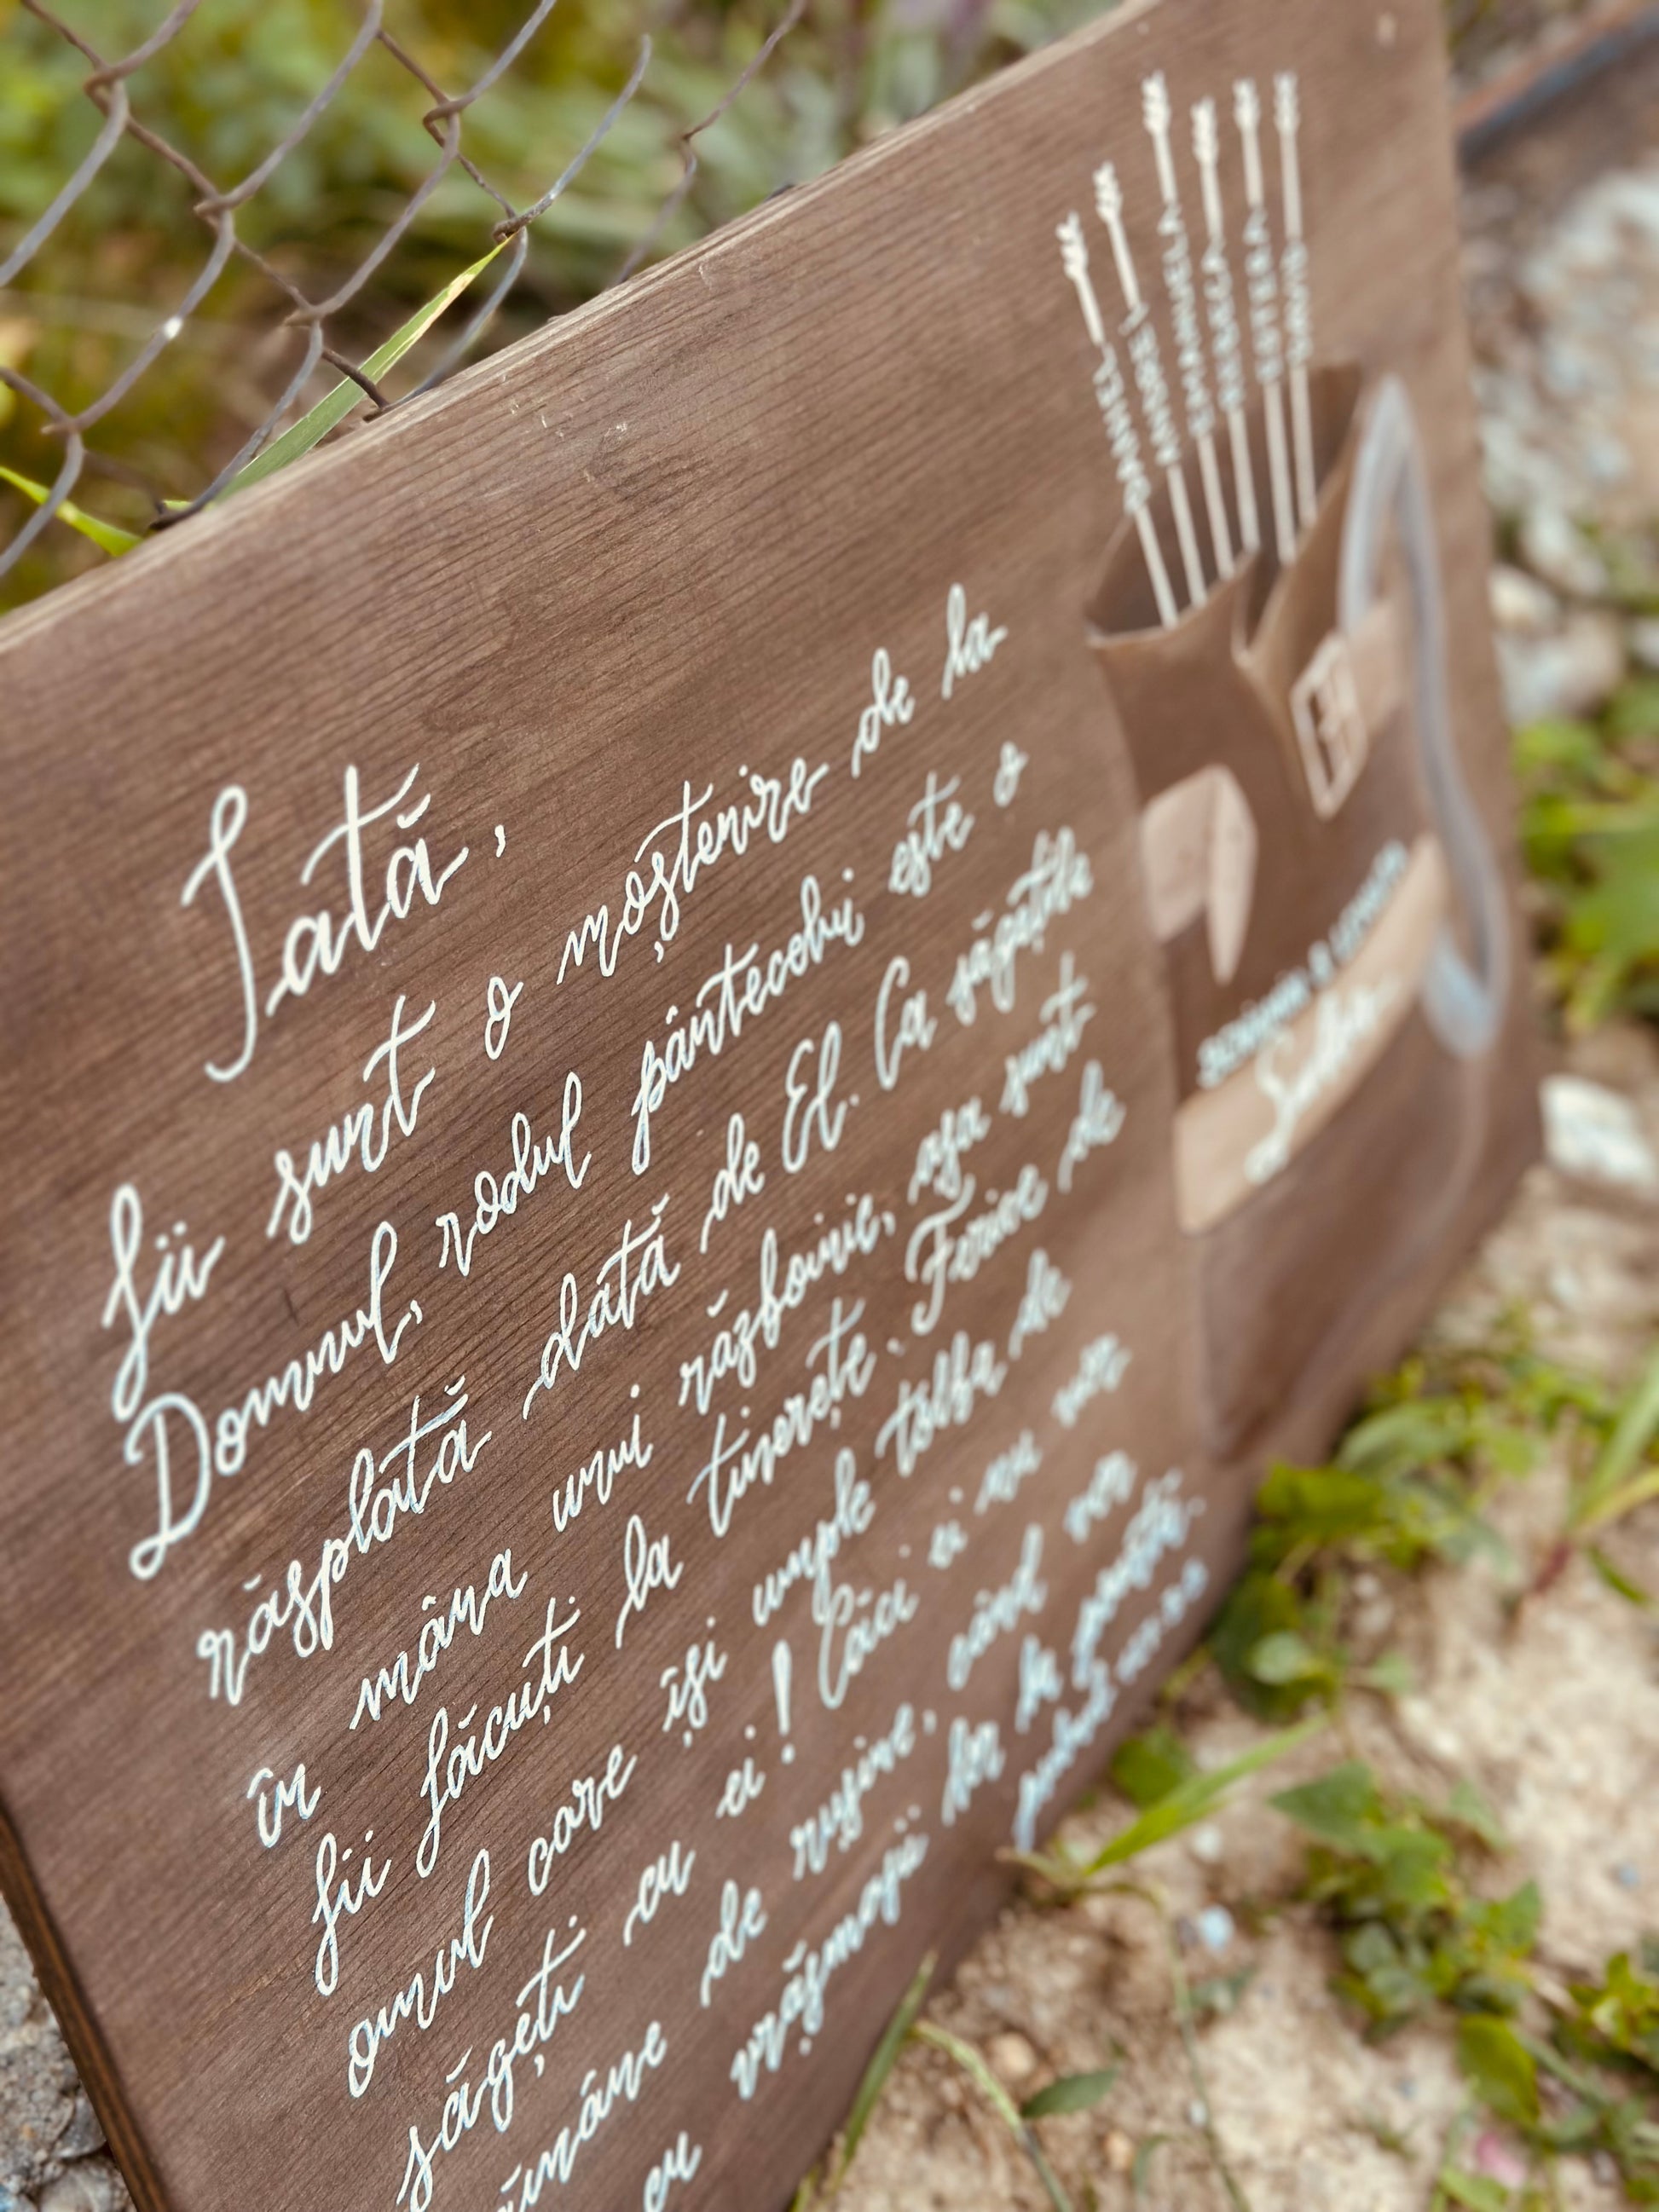 Iată,
fii sunt o moștenire de la
Domnul, rodul pântecelui este o
răsplată dată de El. Ca săgețile
în mâna unui războinic, așa sunt
fii făcuți la tinerețe. Ferice de
omul care își umple tolba de
săgeți cu ei! Căci ei nu vor
rămâne de rușine, când vor
cu vrăjmașii lor la poartă.
DANIEL
EMANUELA
REBECA
ESTERA
BENIAMIN &